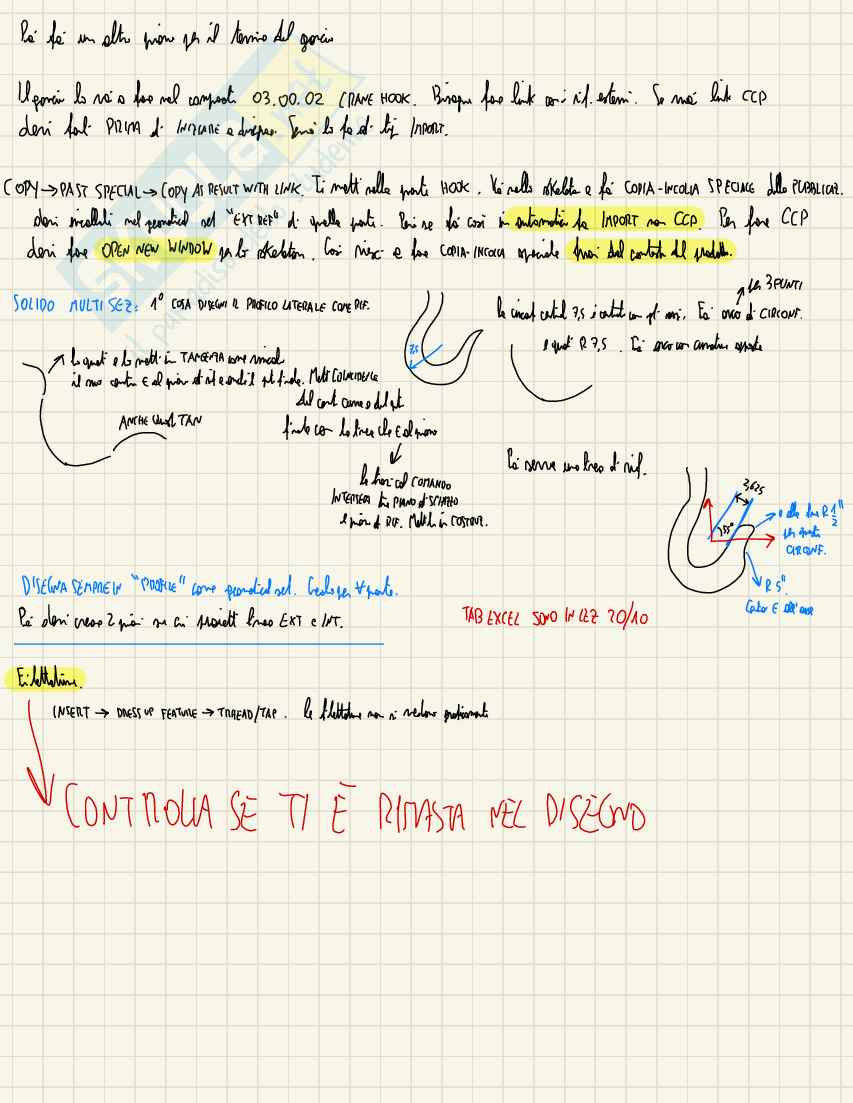 Poi fai un altro piano per il termine del gancio
Il gancio lo vai a fare nel component 03.00.02 CRANE HOOK. Bisogna fare link con i rif. esterni. Se vuoi link CCP
devi farli PRIMA di INIZIARE a disegnare. Sennò lo fa di tipo IMPORT.
COPY → PAST SPECIAL → COPY AS RESULT WITH LINK. Ti metti nella parte HOOK. Vai nello skeleton e fai COPIA-INCOLLA SPECIALE delle PUBBLICAZ.
devi incollarli nel geometrical set "EXT REF" di quella parte. Però se fai così in automatico fa IMPORT non CCP. Per fare CCP
devi fare OPEN NEW WINDOW per lo skeleton. Così riesci a fare COPIA-INCOLLA speciale fuori dal contesto del prodotto.
per 3 PUNTI
SOLIDO MULTI SEZ: 1° COSA DISEGNI IL PROFILO LATERALE COME RIF.
la circonf 7,5 è con gli assi. Fai arco di CIRCONF.
7,5
lo quoti e lo metti in TANGENZA come vincolo
e quoti R 7,5. Fai arco con curvatura opposta
il suo centro E al piano di rif e anche il pt finale. Metti COINCIDENZA
del e del pt
ANCHE QUI TAN
finale con la linea che E al piano
Poi serve una linea di rif.
la trovi col COMANDO
INTERSECA tra PIANO DI SCHIZZO
e piano di RIF. Metti in COSTRUZ.
3,625
55°
R 1"/2
per questa
CIRCONF.
R 5".
DISEGNA SEMPRE IN "PROFILE" come geometrical set. Crealo per ∀ parte.
Poi devi creare 2 piani su cui proietti linea EXT e INT.
TAB EXCEL SONO IN LEZ 20/10
Filettatura.
INSERT → DRESS UP FEATURE → THREAD/TAP. le filettature non si vedono graficamente
CONTROLLA SE TI È RIMASTA NEL DISEGNO